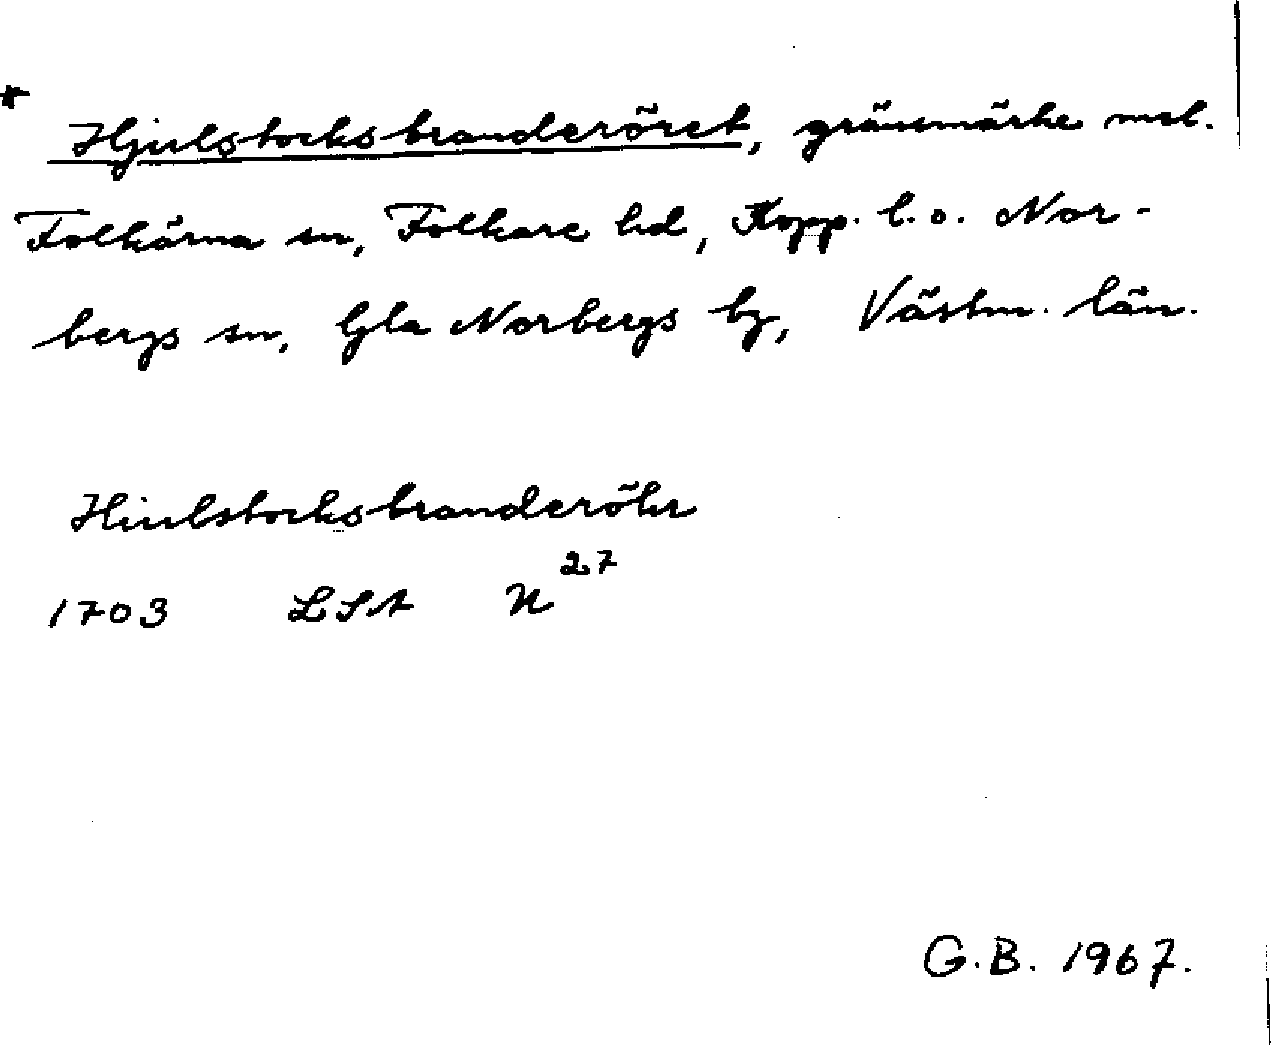 * Hjulstocksbranderöret, gränsmärke mel.
Folkärna sn, Folkare hd, Kopp. l. o. Nor-
bergs sn, Gla Norbergs by, Västm. län.
Hiulstocksbranderöhr
1703 LSA N 27
G.B. 1967.